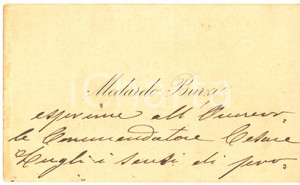 Medardo Burzi
esprime all'Onorevo-
le Commendatore Cesare
Zucchi i sensi di pro-